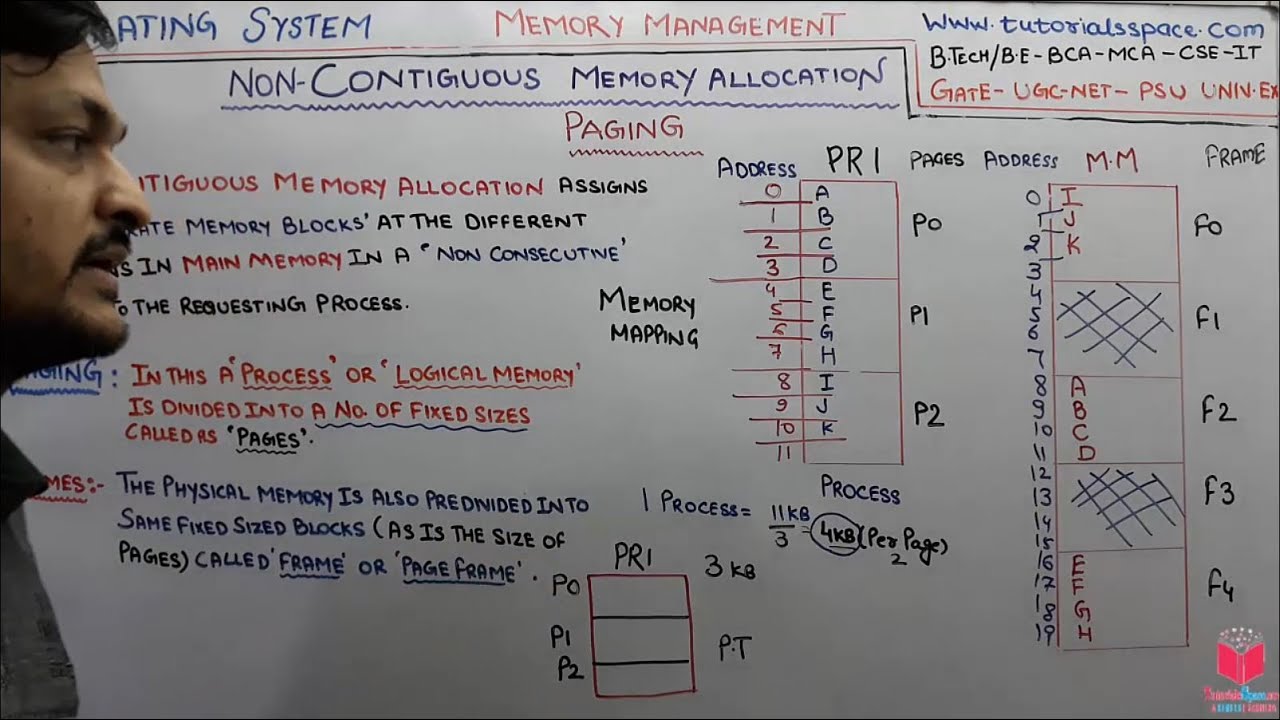 ATING SYSTEM
MEMORY MANAGEMENT
www.tutorialsspace.com
B.TECH/B.E-BCA-MCA-CSE-IT
GATE-UGC-NET-PSU UNIV.EX
NON-CONTIGUOUS MEMORY ALLOCATION
PAGING
TIGUOUS MEMORY ALLOCATION ASSIGNS
ATE MEMORY BLOCKS' AT THE DIFFERENT
NS IN MAIN MEMORY IN A 'NON CONSECUTIVE'
TO THE REQUESTING PROCESS.
AGING: IN THIS A 'PROCESS' OR 'LOGICAL MEMORY'
IS DIVIDED INTO A NO. OF FIXED SIZES
CALLED AS 'PAGES'.
MES:- THE PHYSICAL MEMORY IS ALSO PREDNIDED INTO
SAME FIXED SIZED BLOCKS (AS IS THE SIZE OF
PAGES) CALLED 'FRAME' OR 'PAGE FRAME'.
MEMORY
MAPPING
ADDRESS PR1 PAGES
0 A
1 B
P0
2 C
3 D
4 E
5 F
P1
6 G
7 H
8 I
9 J
P2
10 K
11
PROCESS
1 PROCESS = 11KB
3
= 4KB (Per Page)
2
PR1
3 KB
P0
P1
P2
P.T
ADDRESS M.M FRAME
0 I
1 J
F0
2 K
3
4
5
F1
6
7
8 A
9 B
F2
10 C
11 D
12
13
F3
14
15
16 E
17 F
F4
18 G
19 H